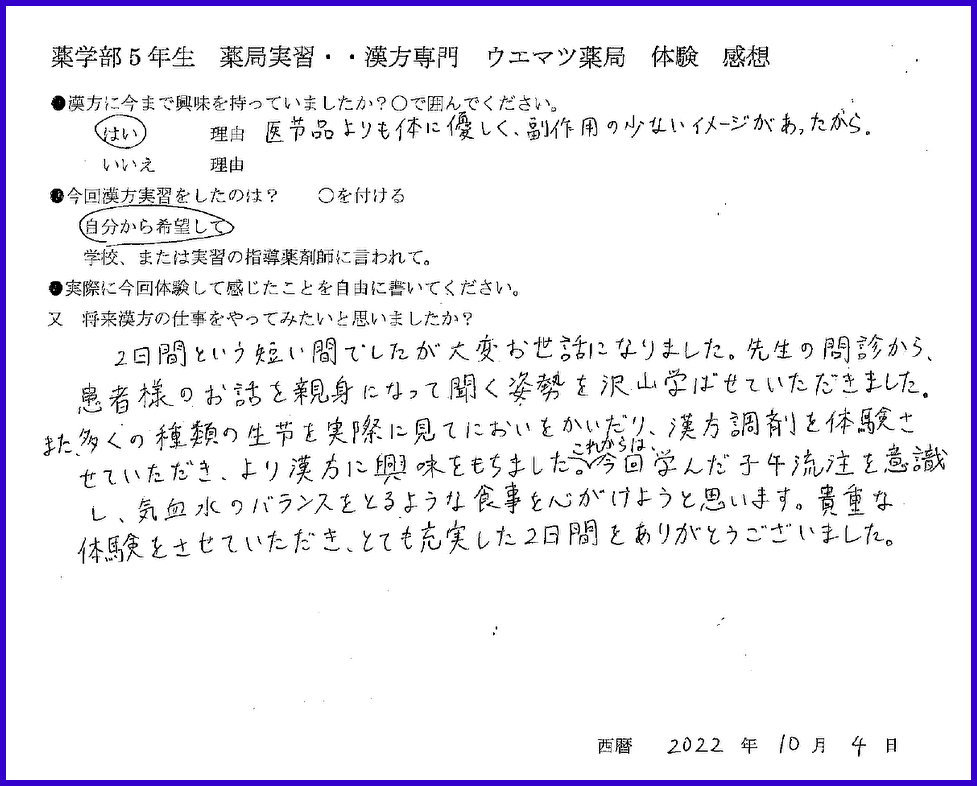 薬学部5年生　薬局実習・・漢方専門　ウエマツ薬局　体験　感想
●漢方に今まで興味を持っていましたか？○で囲んでください。
はい　理由　医节品よりも体に優しく、副作用の少ないイメージがあったから。
いいえ　理由
●今回漢方実習をしたのは？　○を付ける
自分から希望して
学校、または実習の指導薬剤師に言われて。
●実際に今回体験して感じたことを自由に書いてください。
又　将来漢方の仕事をやってみたいと思いましたか？
2日間という短い間でしたが大変お世話になりました。先生の問診から、
患者様のお話を親身になって聞く姿勢を沢山学ばせていただきました。
また、多くの種類の生节を実際に見てにおいをかいだり、漢方調剤を体験さ
せていただき、より漢方に興味をもちました。これからは、今回学んだ子午流注を意識
し、気血水のバランスをとるような食事を心がけようと思います。貴重な
体験をさせていただき、とても充実した2日間をありがとうございました。
西暦　2022年10月4日